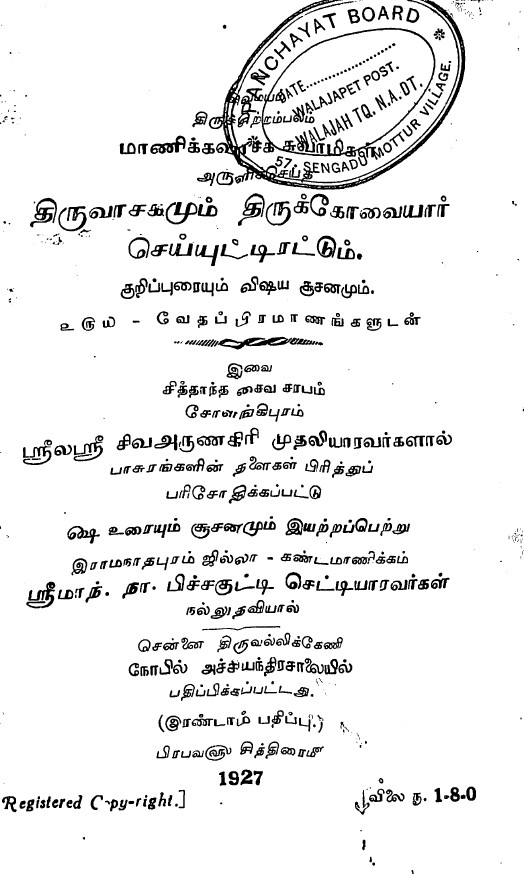 PANCHAYAT BOARD
DATE
WALAJAPET POST.
WALAJAH TQ. N.A.DT.
57, SENGADU MOTTUR VILLAGE.
சிவமயம்
திருச்சிற்றம்பலம்
மாணிக்கவாசக சுவாமிகள்
அருளிச்செய்த
திருவாசகமும் திருக்கோவையார்
செய்யுட்டிரட்டும்.
குறிப்புரையும் விஷய சூசனமும்.
உருய - வேதப்பிரமாணங்களுடன்
இவை
சித்தாந்த சைவ சரபம்
சோளங்கிபுரம்
ஸ்ரீலஸ்ரீ சிவஅருணகிரி முதலியாரவர்களால்
பாசுரங்களின் தளைகள் பிரித்துப்
பரிசோதிக்கப்பட்டு
ஷை உரையும் சூசனமும் இயற்றப்பெற்று
இராமநாதபுரம் ஜில்லா - கண்டமாணிக்கம்
ஸ்ரீமாந். நா. பிச்சகுட்டி செட்டியாரவர்கள்
நல்லுதவியால்
சென்னை திருவல்லிக்கேணி
நோபில் அச்சியந்திரசாலையில்
பதிப்பிக்கப்பட்டது.
(இரண்டாம் பதிப்பு.)
பிரபவ௵ சித்திரை௴
1927
Registered Copy-right.]
[விலை ரூ. 1-8-0